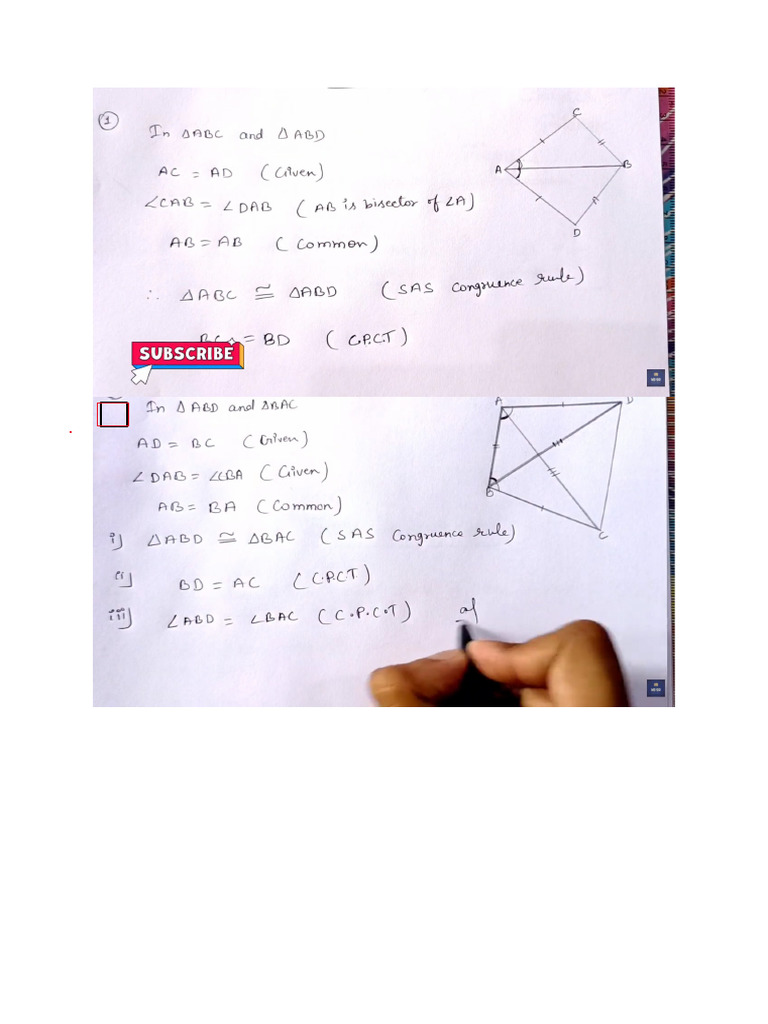 1
In △ABC and △ABD
AC = AD (Given)
∠CAB = ∠DAB (AB is bisector of ∠A)
AB = AB (Common)
∴ △ABC ≅ △ABD (SAS congruence rule)
= BD (C.P.C.T)
SUBSCRIBE
C
A
B
D
In △ABD and △BAC
AD = BC (Given)
∠DAB = ∠CBA (Given)
AB = BA (Common)
i) △ABD ≅ △BAC (SAS Congruence rule)
ii) BD = AC (C.P.C.T)
iii) ∠ABD = ∠BAC (C.P.C.T)
A
B
C